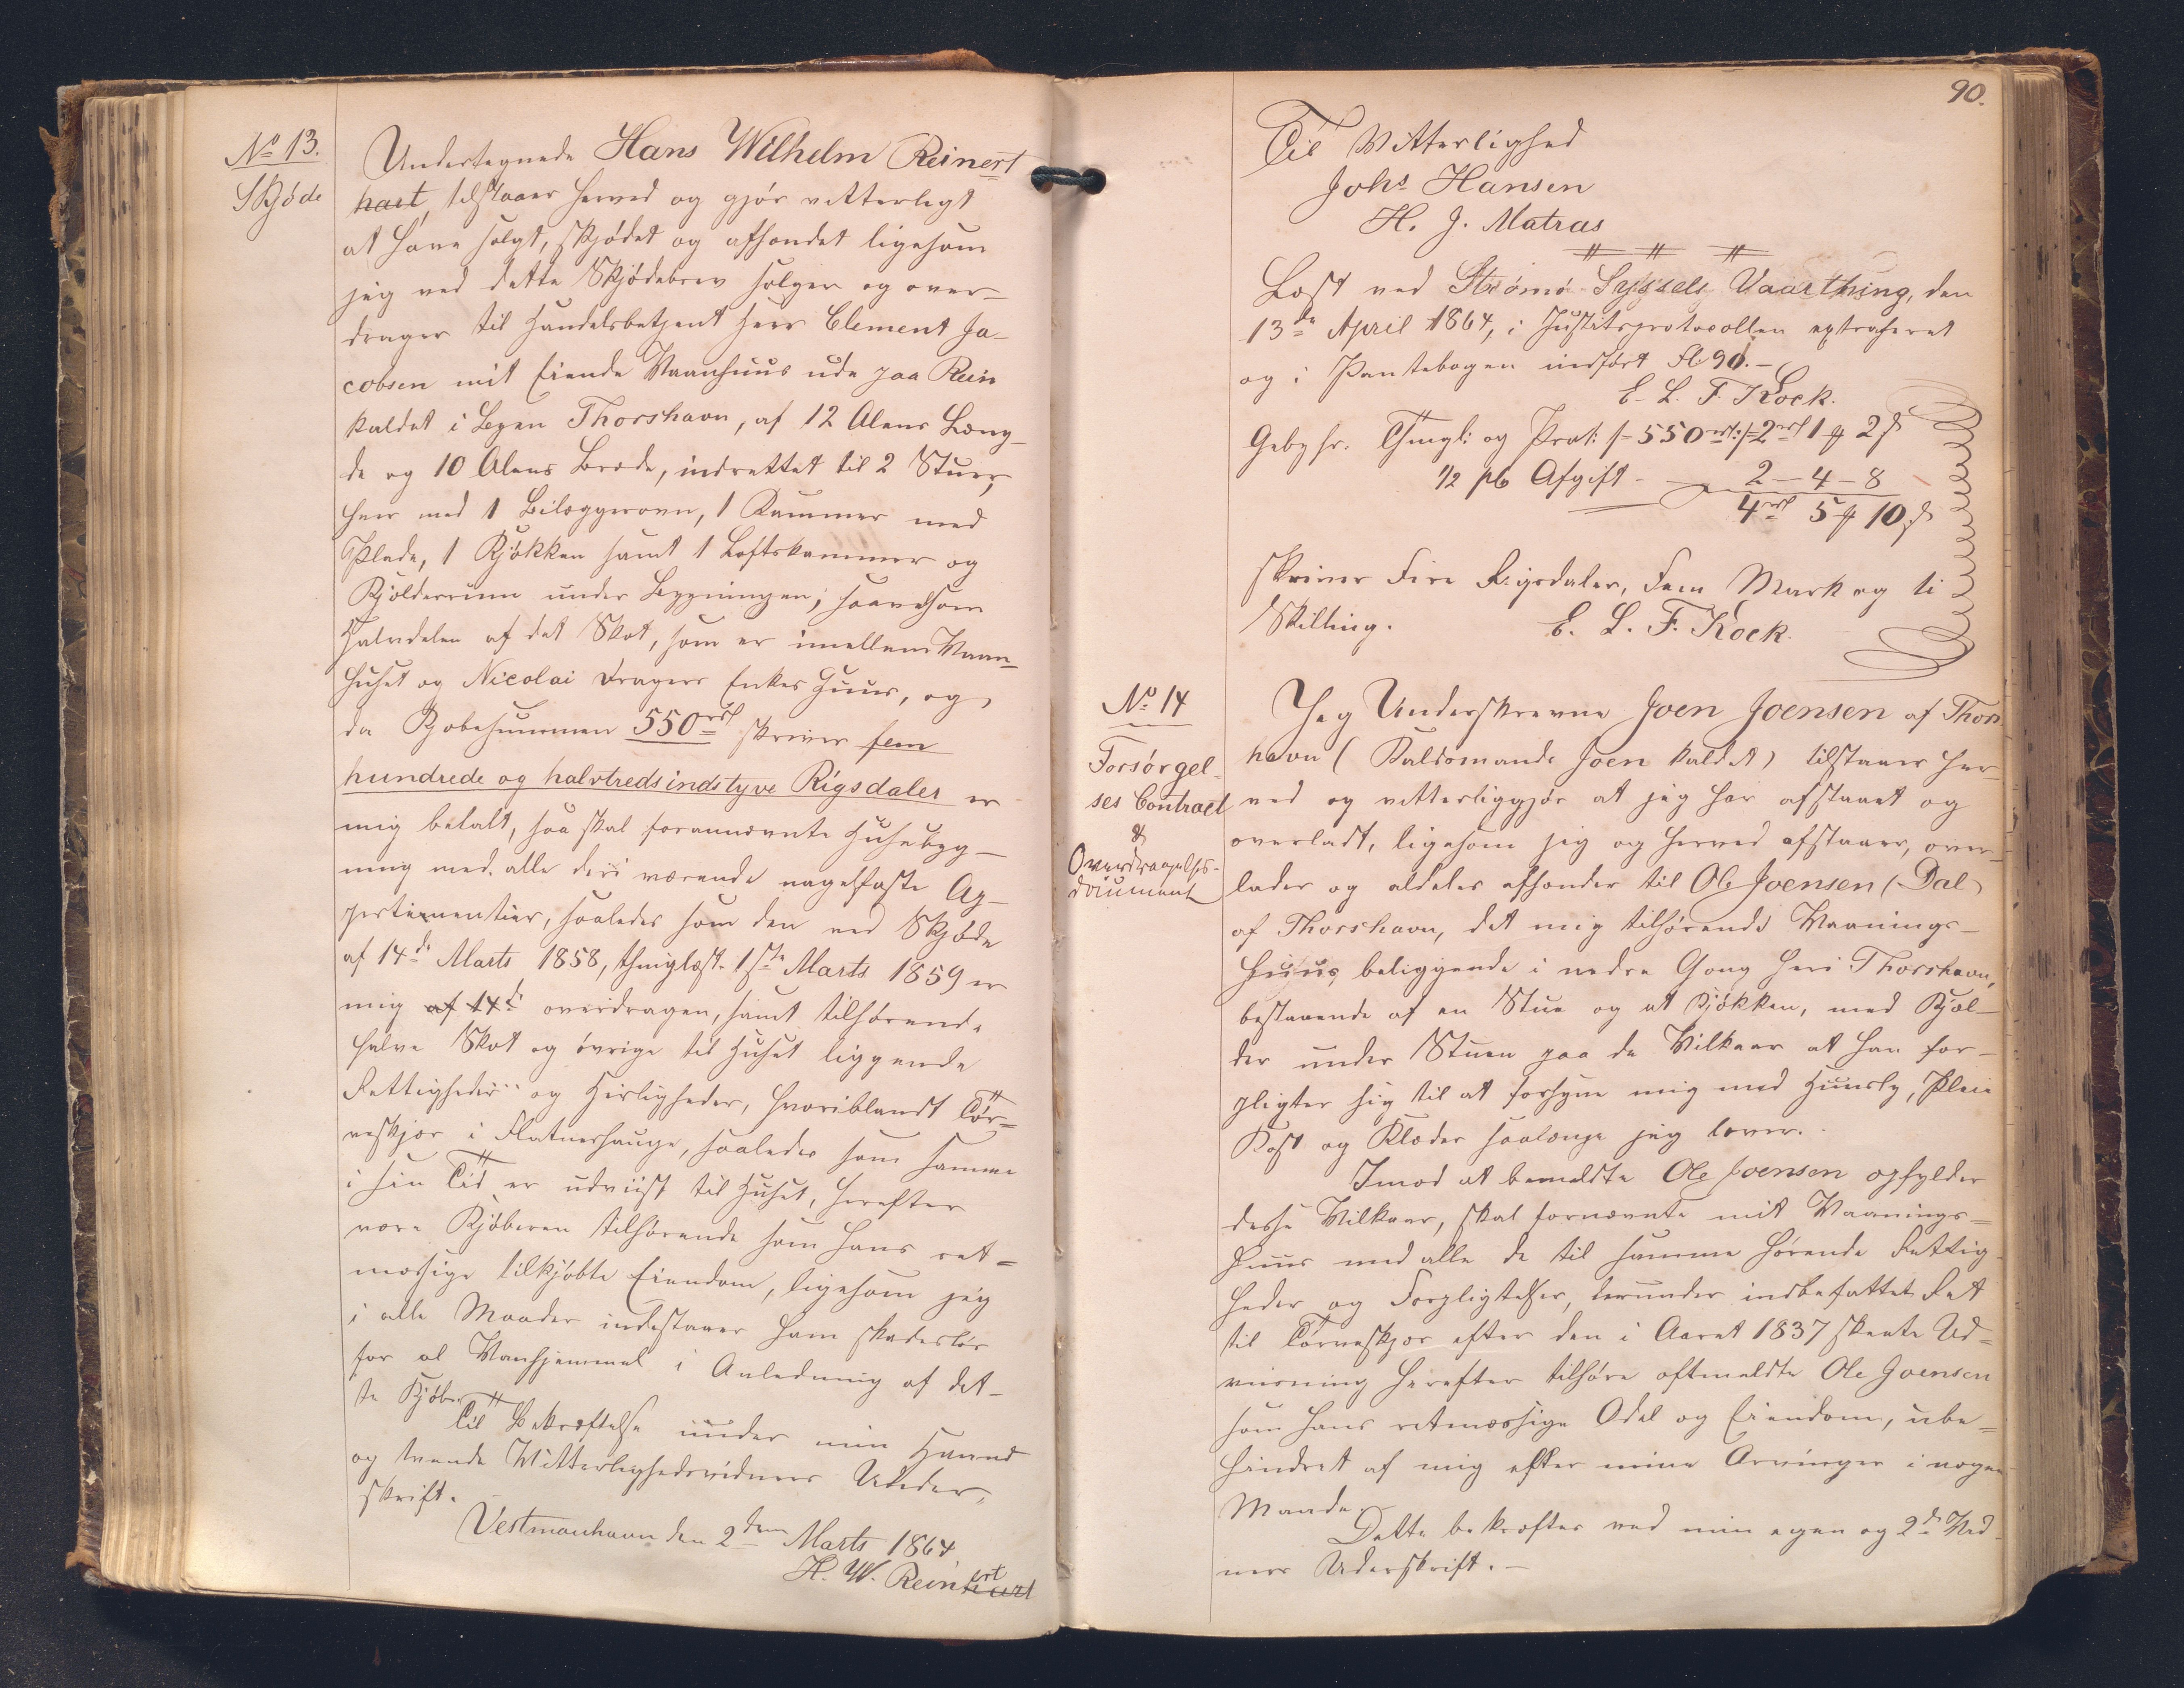 No 13.
Skjøde
Undertegnede Hans Wilhelm Reinert
hart, tilstaaer herved og gjør vitterligt
at have solgt, skjødet og afhændet ligesom
jeg ved dette Skjødebrev sælger og over-
drager til Handelsbetjent Herr Clement Ja-
cobsen mit Eiende Vaanhuus ude paa Rein
kaldet i Byen Thorshavn, af 12 Alens Læng-
de og 10 Alens Brede, indrettet til 2 Stuer,
hver med 1 Bilæggerovn, 1 Kammer med
Plade, 1 Kjøkken samt 1 Loftskammer og
Kjølderrum under Bygningen; saavelsom
Halvdelen af det Skot, som er imellem Vaan-
huset og Nicolai Dragers Enkes Huus, og
da Kjøbesummen 550 rd skriver fem
hundrede og halvtredsindstyve Rigsdaler er
mig betalt, saa skal forannævnte Husebyg-
ning med alle deri værende nagelfaste Ap-
pertinentier, saaledes som den ved Skjøde
af 14de Marts 1858, thinglæst 1ste Marts 1859 er
mig af 14de overdragen, samt tilhørende
halve Skot og øvrige til Huset liggende
Rettigheder og Herligheder, hvoriblandt Tør-
veskjær i Flatnerhauge, saaledes som samme
i sin Tid er udviist til Huset, herefter
være Kjøberen tilhørende som hans ret-
mæssige tilkjøbte Eiendom, ligesom jeg
i alle Maader indestaaer ham skadesløs
for al Vanhjemmel i Anledning af det-
te Kjøb.
Til Bekræftelse under min Haand
og tvende Vitterlighedsvidners Under-
skrift.
Vestmanhavn den 2den Marts 1864
H. W. Reinert
90.
Til Vitterlighed
Johs Hansen
H. J. Matras
Læst ved Strømø Syssels Vaarthing, den
13de April 1864, i Justitsprotocollen extraheret
og i Pantebogen indført fl. 90.-
E. L. F. Kock.
Gebyhr. Thingl: og Prot: /- 550 rd:/- 2 rd 1 # 2 s
1/2 pC Afgift - 2 - 4 - 8
4 rd 5 # 10 s
skriver Fire Rigsdaler, Fem Mark og ti
Skilling. E. L. F. Kock.
No 14
Forsørgel-
ses Contract
&
Overdragelses-
document
Jeg Underskrevne Joen Joensen af Thors-
havn (Kalsomands Joen kaldet) tilstaaer her-
ved og vitterliggjør at jeg har afstaaet og
overladt, ligesom jeg og herved afstaaer, over-
lader og aldeles afhænder til Ole Joensen (Dal)
af Thorshavn, det mig tilhørende Vaanings-
Huus, beliggende i nedre Gong heri Thorshavn,
bestaaende af en Stue og et Kjøkken, med Kjæl-
der under Stuen paa de Vilkaar at han for-
pligter sig til at forsyne mig med Huusly, Pleie
Kost og Klæder saalænge jeg lever.
Imod at bemeldte Ole Joensen opfylder
disse Vilkaar, skal fornævnte mit Vaanings-
Huus med alle de til samme hørende Rettig-
heder og Forpligtelser, derunder indbefattet Ret
til Tørveskjær efter den i Aaret 1837 skeete Ud-
viisning herefter tilhøre oftmeldte Ole Joensen
som hans retmæssige Odel og Eiendom, ube-
hindret af mig eller mine Arvinger i nogen
Maade.
Dette bekræftes ved min egen og 2de Vid-
ners Underskrift.-